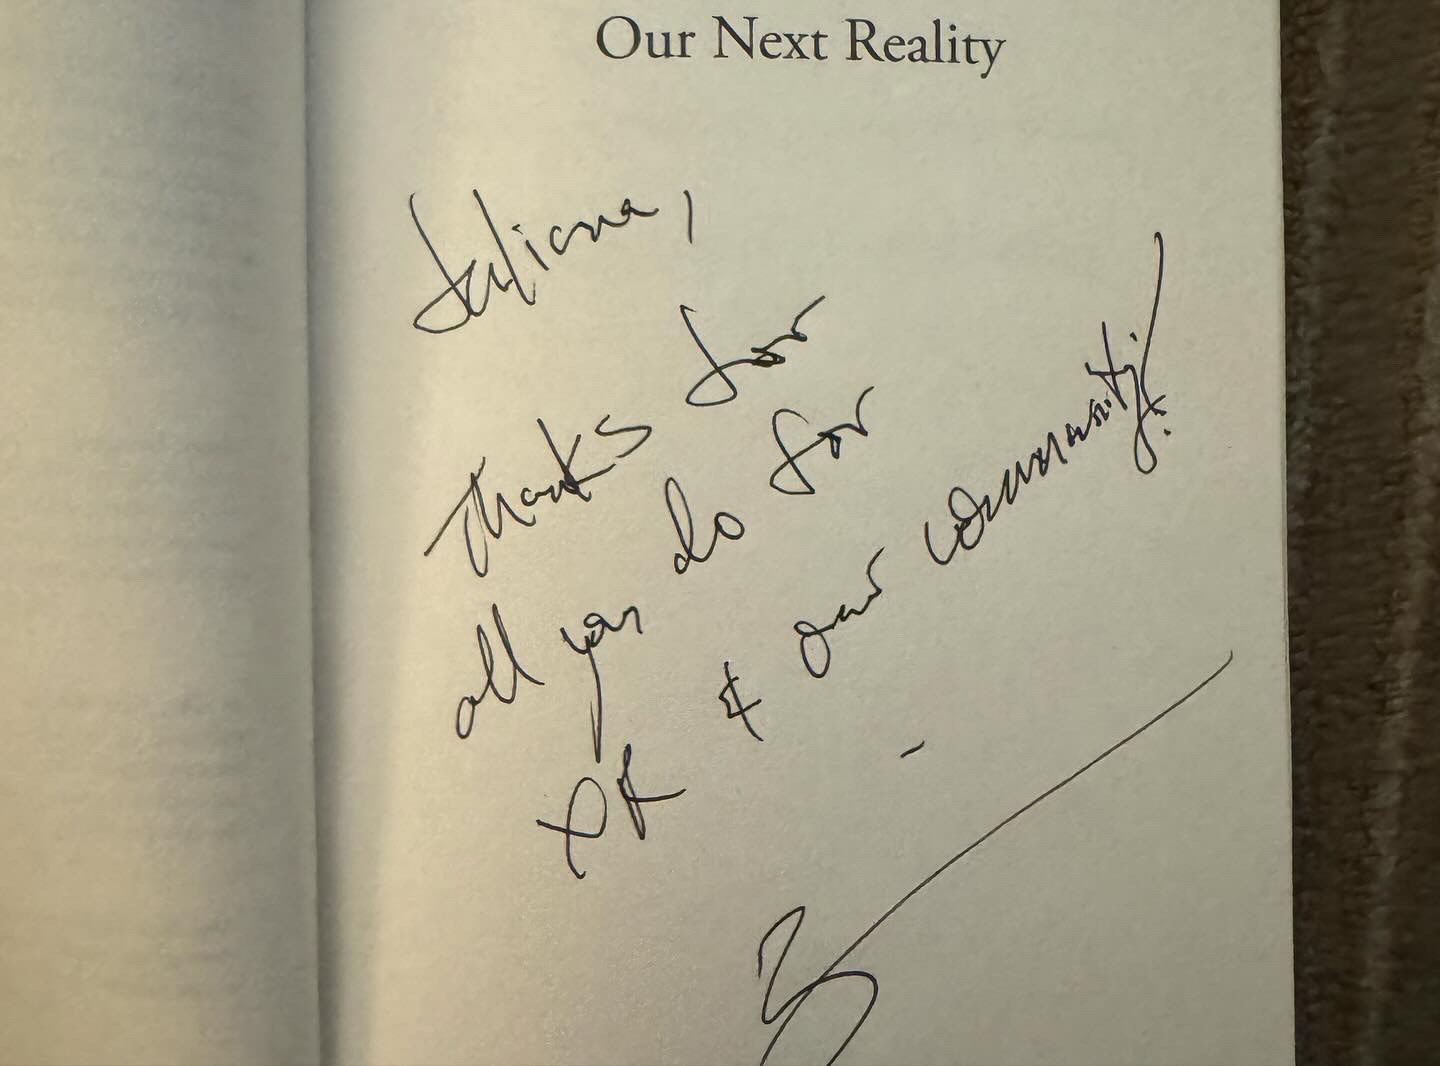 Our Next Reality
Tatiana,
Thanks for
all you do for
XR & our community!
-